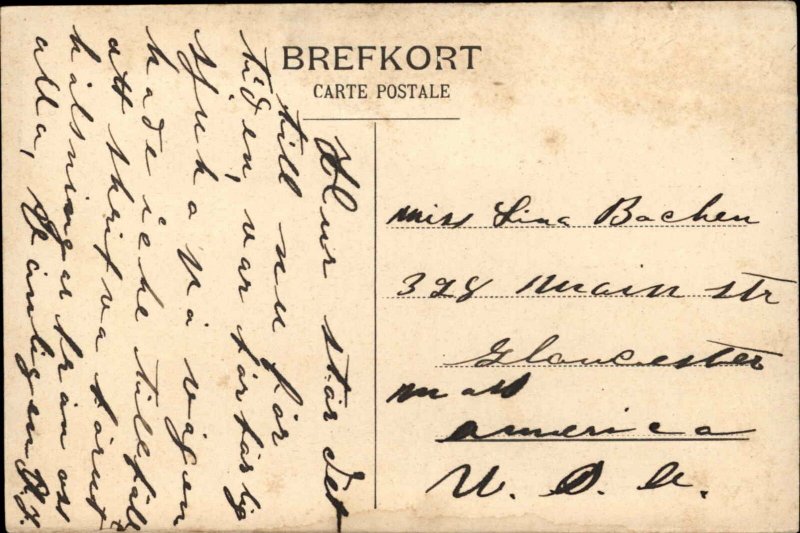 BREFKORT
CARTE POSTALE
Hur står det
till nu för
tiden, var förfärlig
sjuk på vägen
hade icke tillfälle
att skrifva förut
hälsningar från oss
alla, Vänligen
Miss Lina Bachen
328 Main str
Gloucester
Mass
America
U. S. A.